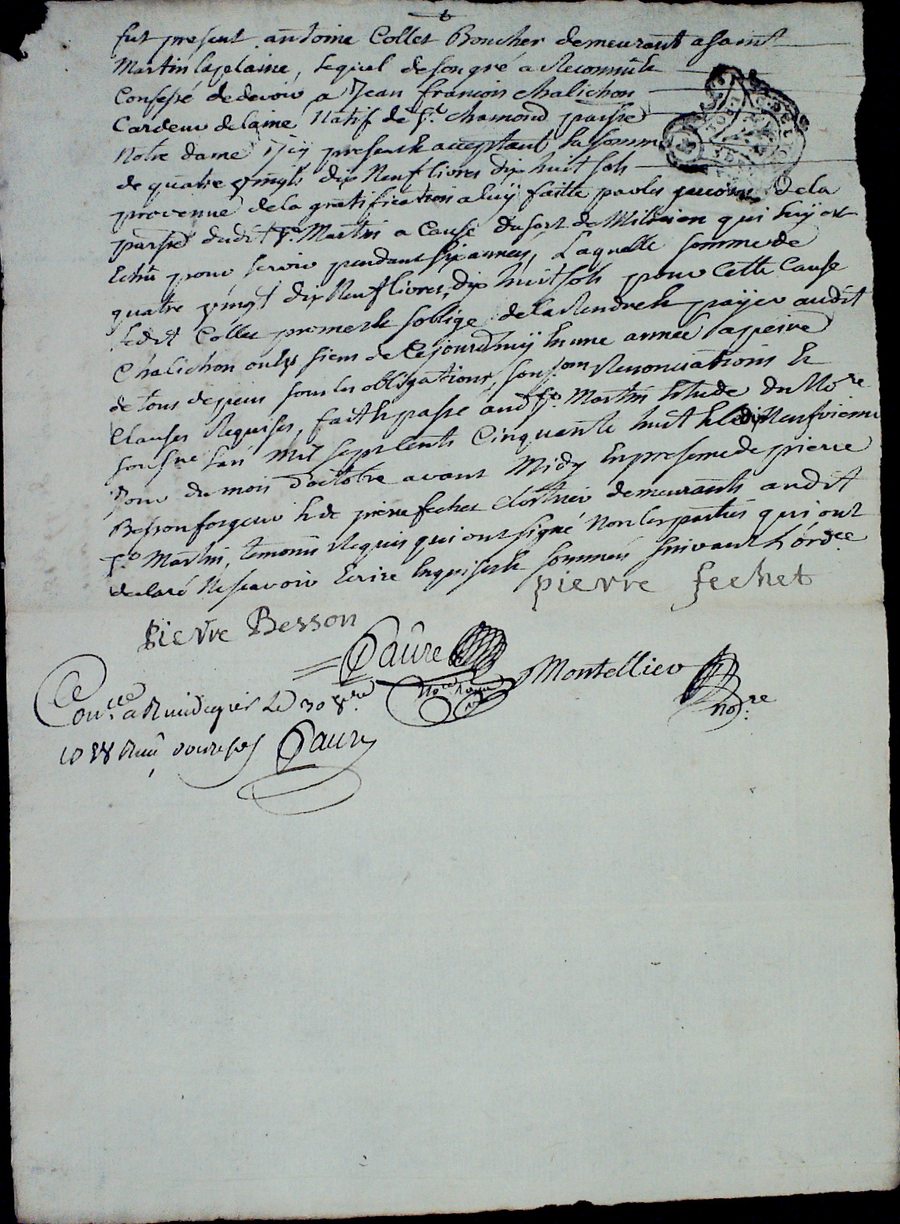 fut present antoine Collet Boucher demeurant a saint
Martin laplaine, lequel de son gré a Reconnu &
Confessé de devoir a Jean francois chalichon
Cardeur de laine Natif de St. chamond parsse
Notre dame Icy present & acceptant la somme
de quatre vingt dix Neuf livres dix huit sols
provenue de la gratification a luy faitte par les de la
parsse dudit St. Martin a Cause du sort de Millicien qui luy est
Echu pour servir pendant six années, Laquelle somme de
quatre vingt dix Neuf livres, dix huit sols pour Cette Cause
ledit Collet promet & soblige de la Rendre & payer audit
Chalichon ou les siens de Cejourdhuy En une année apeine
de tous depens sous les obligations, soumissions Renonciations &
Clauses Requises, fait & passé audit St. Martin Etude du Nore
sousne lan Mil sept cents Cinquante huit & le dix Neufvieme
Jour du mois doctobre avant Midy En presence de pierre
Besson forgeur & de pierre fechet Cloutier demeurants audit
St. Martin, temoins Requis qui ont signé Non les parties qui ont
declaré Ne scavoir Ecrire Enquises & sommées suivant L'ordce
pierre fechet
pierre Besson
Faure
Nore Royal
Montellier
Nore
Conllé a Rivedegier Le 30 8bre
1758 Reçu douze sols Faure